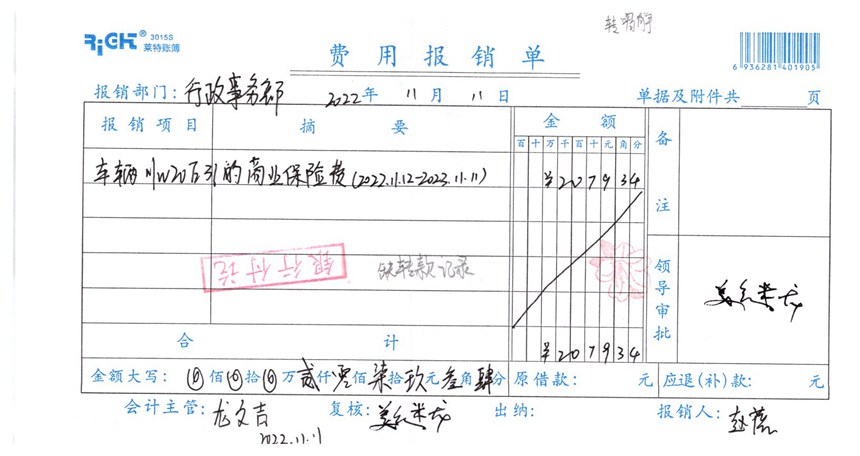 转
RiGHT® 3015S
莱特账簿
费用报销单
6 936281 401905
报销部门:行政事务部 2022年 11月 11日 单据及附件共 页
报销项目 摘要 金额 备注
百十万千百十元角分
车辆 的商业保险费(2022.11.12-2023.11.11) ¥207934
银行付讫
缺转款记录
领导审批
合计 ¥207934
金额大写: ⓪佰⓪拾⓪万贰仟零佰柒拾玖元叁角肆分 原借款: 元 应退(补)款: 元
会计主管:龙文吉 复核: 出纳: 报销人:
2022.11.11